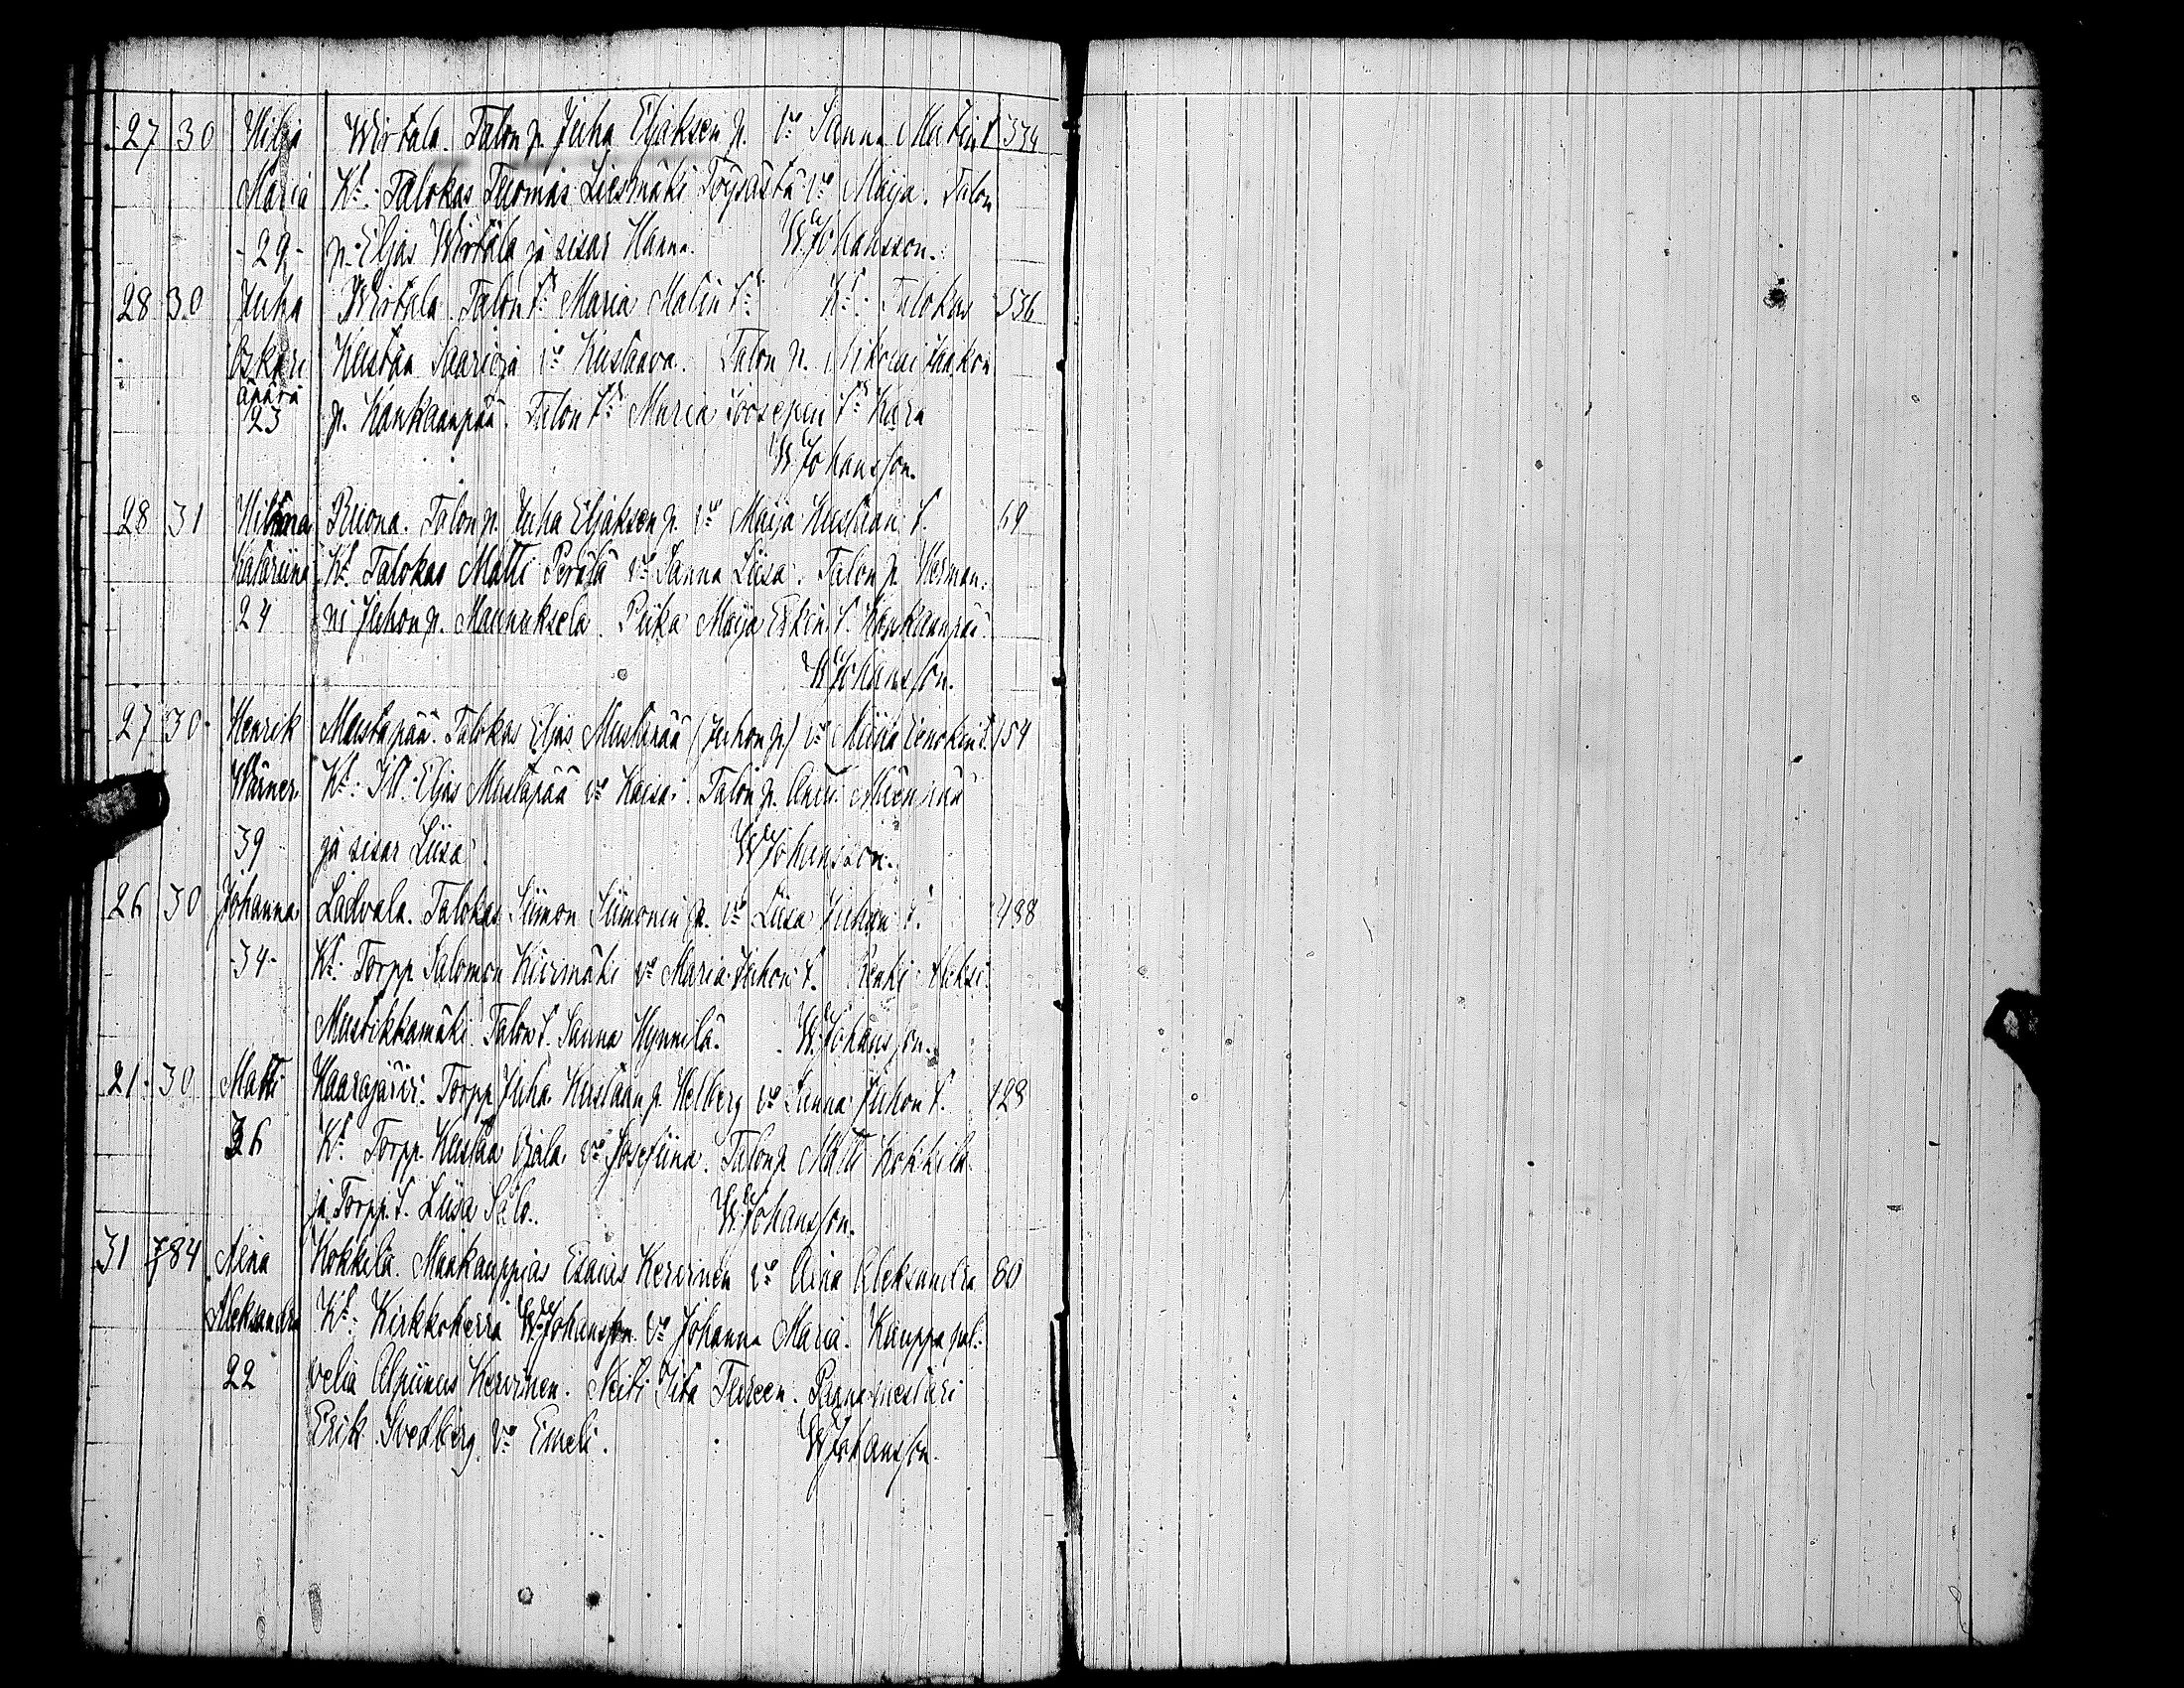 27 30 Hilja Wirtala. Talon p. Juha Eljaksen p. vo Sanna Matin t. 334
Maria Kt: Talokas Tuomas Liesmäki Töysästä vo Maija. Talon
-29- p. Eljas Wirtala ja sisar Hanna. W. Johansson.
28 30 Juha Wirtala. Talon tr Maria Matin tr. Kt: Talokas 336
Oskari Kustaa Saari vo Kustaava. Talon p. Nikolai Jaakon
äpärä
23 p. Kankaanpää. Talon tr Maria Joosepin tr Kara
W. Johansson.
28 31 Hilma Ruona. Talon p. Juha Eljaksen p. vo Maija Kustaan t. 69
Katariina Kt. Talokas Matti Perälä vo Sanna Liisa. Talon p. Herman-
24 ni Juhon p. Mannuksela. Piika Maija Erkin t. Kankaanpää
W. Johansson.
27 30 Henrik Mustapää. Talokas Eljas Mustapää (Juhon p.) vo Miina Eenokin t. 154
Wärner Kt: Eljas Mustapää vo Kaisa. Talon p. Antti Mäenpää
39 ja sisar Liisa. W. Johansson.
26 30 Johanna Ladvala. Talokas Siimon Siimonin p. vo Liisa Juhan t. 488
-34- Kt: Torpp. Salomon Kivimäki vo Maria Juhon t. Renki Aleksi
Mustikkamäki. Talon t. Sanna Hynnilä. W. Johansson.
21 30 Matti Kaarajärvi. Torpp. Juha Kustaan p. Helberg vo Sanna Juhon t. 128
36 Kt. Torpp. Kustaa Ojala vo Josefiina. Talon p. Matti Kokkila
ja Torpp. t. Liisa Salo. W. Johansson.
31 784 Aina Kokkila. Maakauppias Esaias Kervinen vo Aina Aleksandra 80
Aleksandra Kt: Kirkkoherra W. Johansson vo Johanna Maria. Kauppa pal-
22 velia Alpiinus Kervinen. Neiti Iita Tureen.
Erik Svedberg vo Emeli. W. Johansson.